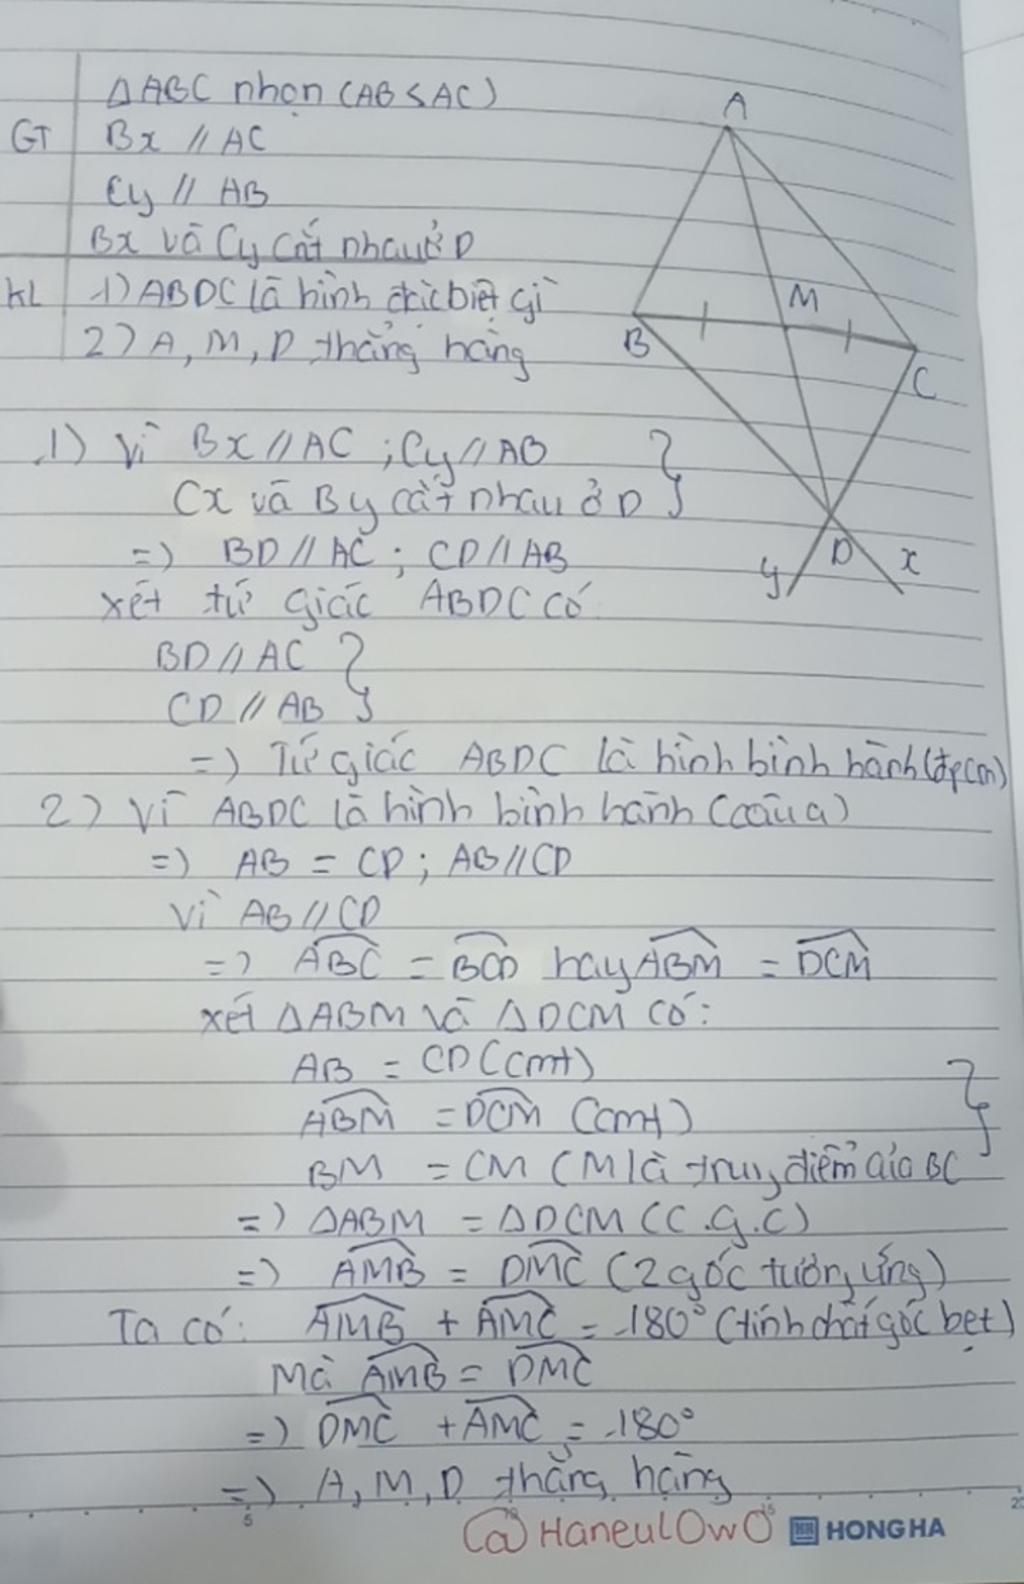 ΔABC nhọn (AB < AC)
GT Bx // AC
Cy // AB
Bx và Cy cắt nhau ở D
KL 1) ABDC là hình đặc biệt gì
2) A, M, D thẳng hàng
A
M
B
C
D
y
x
1) Vì Bx // AC ; Cy // AB }
Cx và By cắt nhau ở D
=) BD // AC ; CD // AB
xét tứ giác ABDC có
BD // AC }
CD // AB
=) Tứ giác ABDC là hình bình hành (đpcm)
2) Vì ABDC là hình bình hành (câu a)
=) AB = CD ; AB // CD
Vì AB // CD
=) \widehat{ABC} = \widehat{BCD} hay \widehat{ABM} = \widehat{DCM}
xét ΔABM và ΔDCM có:
AB = CD (cmt) }
\widehat{ABM} = \widehat{DCM} (cmt)
BM = CM (M là trung điểm của BC
=) ΔABM = ΔDCM (c.g.c)
=) \widehat{AMB} = \widehat{DMC} (2 góc tương ứng)
Ta có: \widehat{AMB} + \widehat{AMC} = 180° (tính chất góc bẹt)
Mà \widehat{AMB} = \widehat{DMC}
=) \widehat{DMC} + \widehat{AMC} = 180°
=) A, M, D thẳng hàng
5 10 15 20
@HaneulOwO HONG HA